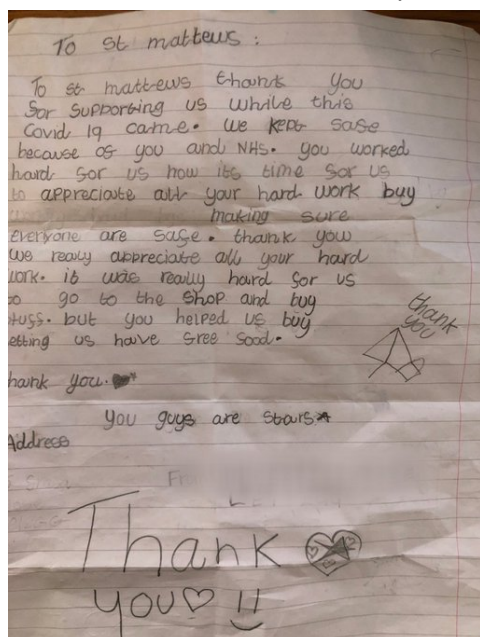 To st mattews:
To st mattews thank you
for supporting us while this
Covid 19 came. we kept safe
because of you and NHS. you worked
hard for us now its time for us
to appreciate all your hard work buy
making sure
Everyone are safe. thank you
we realy appreciate all your hard
work. it was really hard for us
to go to the shop and buy
stuff. but you helped us buy
letting us have free food.
thank
you
thank you.
you guys are stars
Address
Thank
you